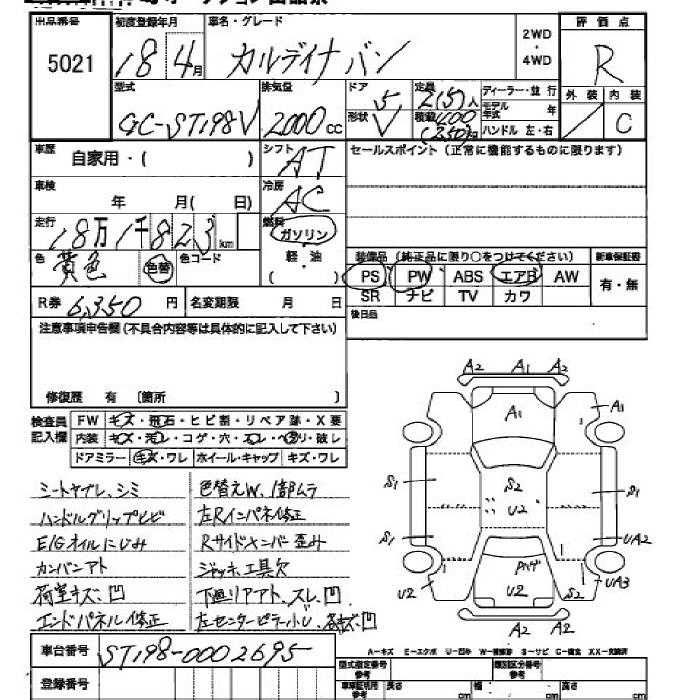 出品番号 初度登録年月 車名・グレード 2WD・4WD 評価点
5021 18 4月 カルディナバン R
型式 排気量 ドア 5 定員 2(5)人 ディーラー・並 行 外装 内装
GC-ST198V 2000cc 形状 V 積載 400(250)kg モデル年式 年 C
ハンドル 左・右
車歴 自家用・( ) シフト AT セールスポイント(正常に機能するものに限ります)
車検 年 月( 日) 冷房 AC
走行 18万1千823km 燃料 ガソリン
色 黄色 色替 色コード 軽・油
( )
装備品(純正品に限り○をつけてください) 新車保証書
PS PW ABS エアB AW 有・無
SR ナビ TV カワ
R券 6,350円 名変期限 月 日 後日品
注意事項申告欄(不具合内容等は具体的に記入して下さい)
修復歴 有 〔箇所 〕
検査員記入欄 FW キズ・飛石・ヒビ割・リペア跡・X要
内装 キズ・汚レ・コゲ・穴・スレ・ヘタリ・破レ
ドアミラー キズ・ワレ ホイール・キャップ キズ・ワレ
シートヤブレ、シミ 色替えW、1部ムラ
ハンドルグリップヒビ 左Rインパネ修正
E/Gオイルにじみ Rサイドメンバー歪み
カンバンアト ジャッキ、工具欠
荷室キズ、凹 下廻リアアト、スレ、凹
エンドパネル修正 左センターピラー小U、各キズ凹
A2 A1 A2
A1 A1
S1 S2 S1
U2 UA2
U2 U2 S2 UA3
A2 A2
A-キズ E-エクボ U-凹み W-補修跡 S-サビ C-腐食 XX-交換済
車台番号 ST198-0002695
登録番号
型式指定番号 参考 類別区分番号 参考
車庫証明用 参考 長さ cm 幅 cm 高さ cm